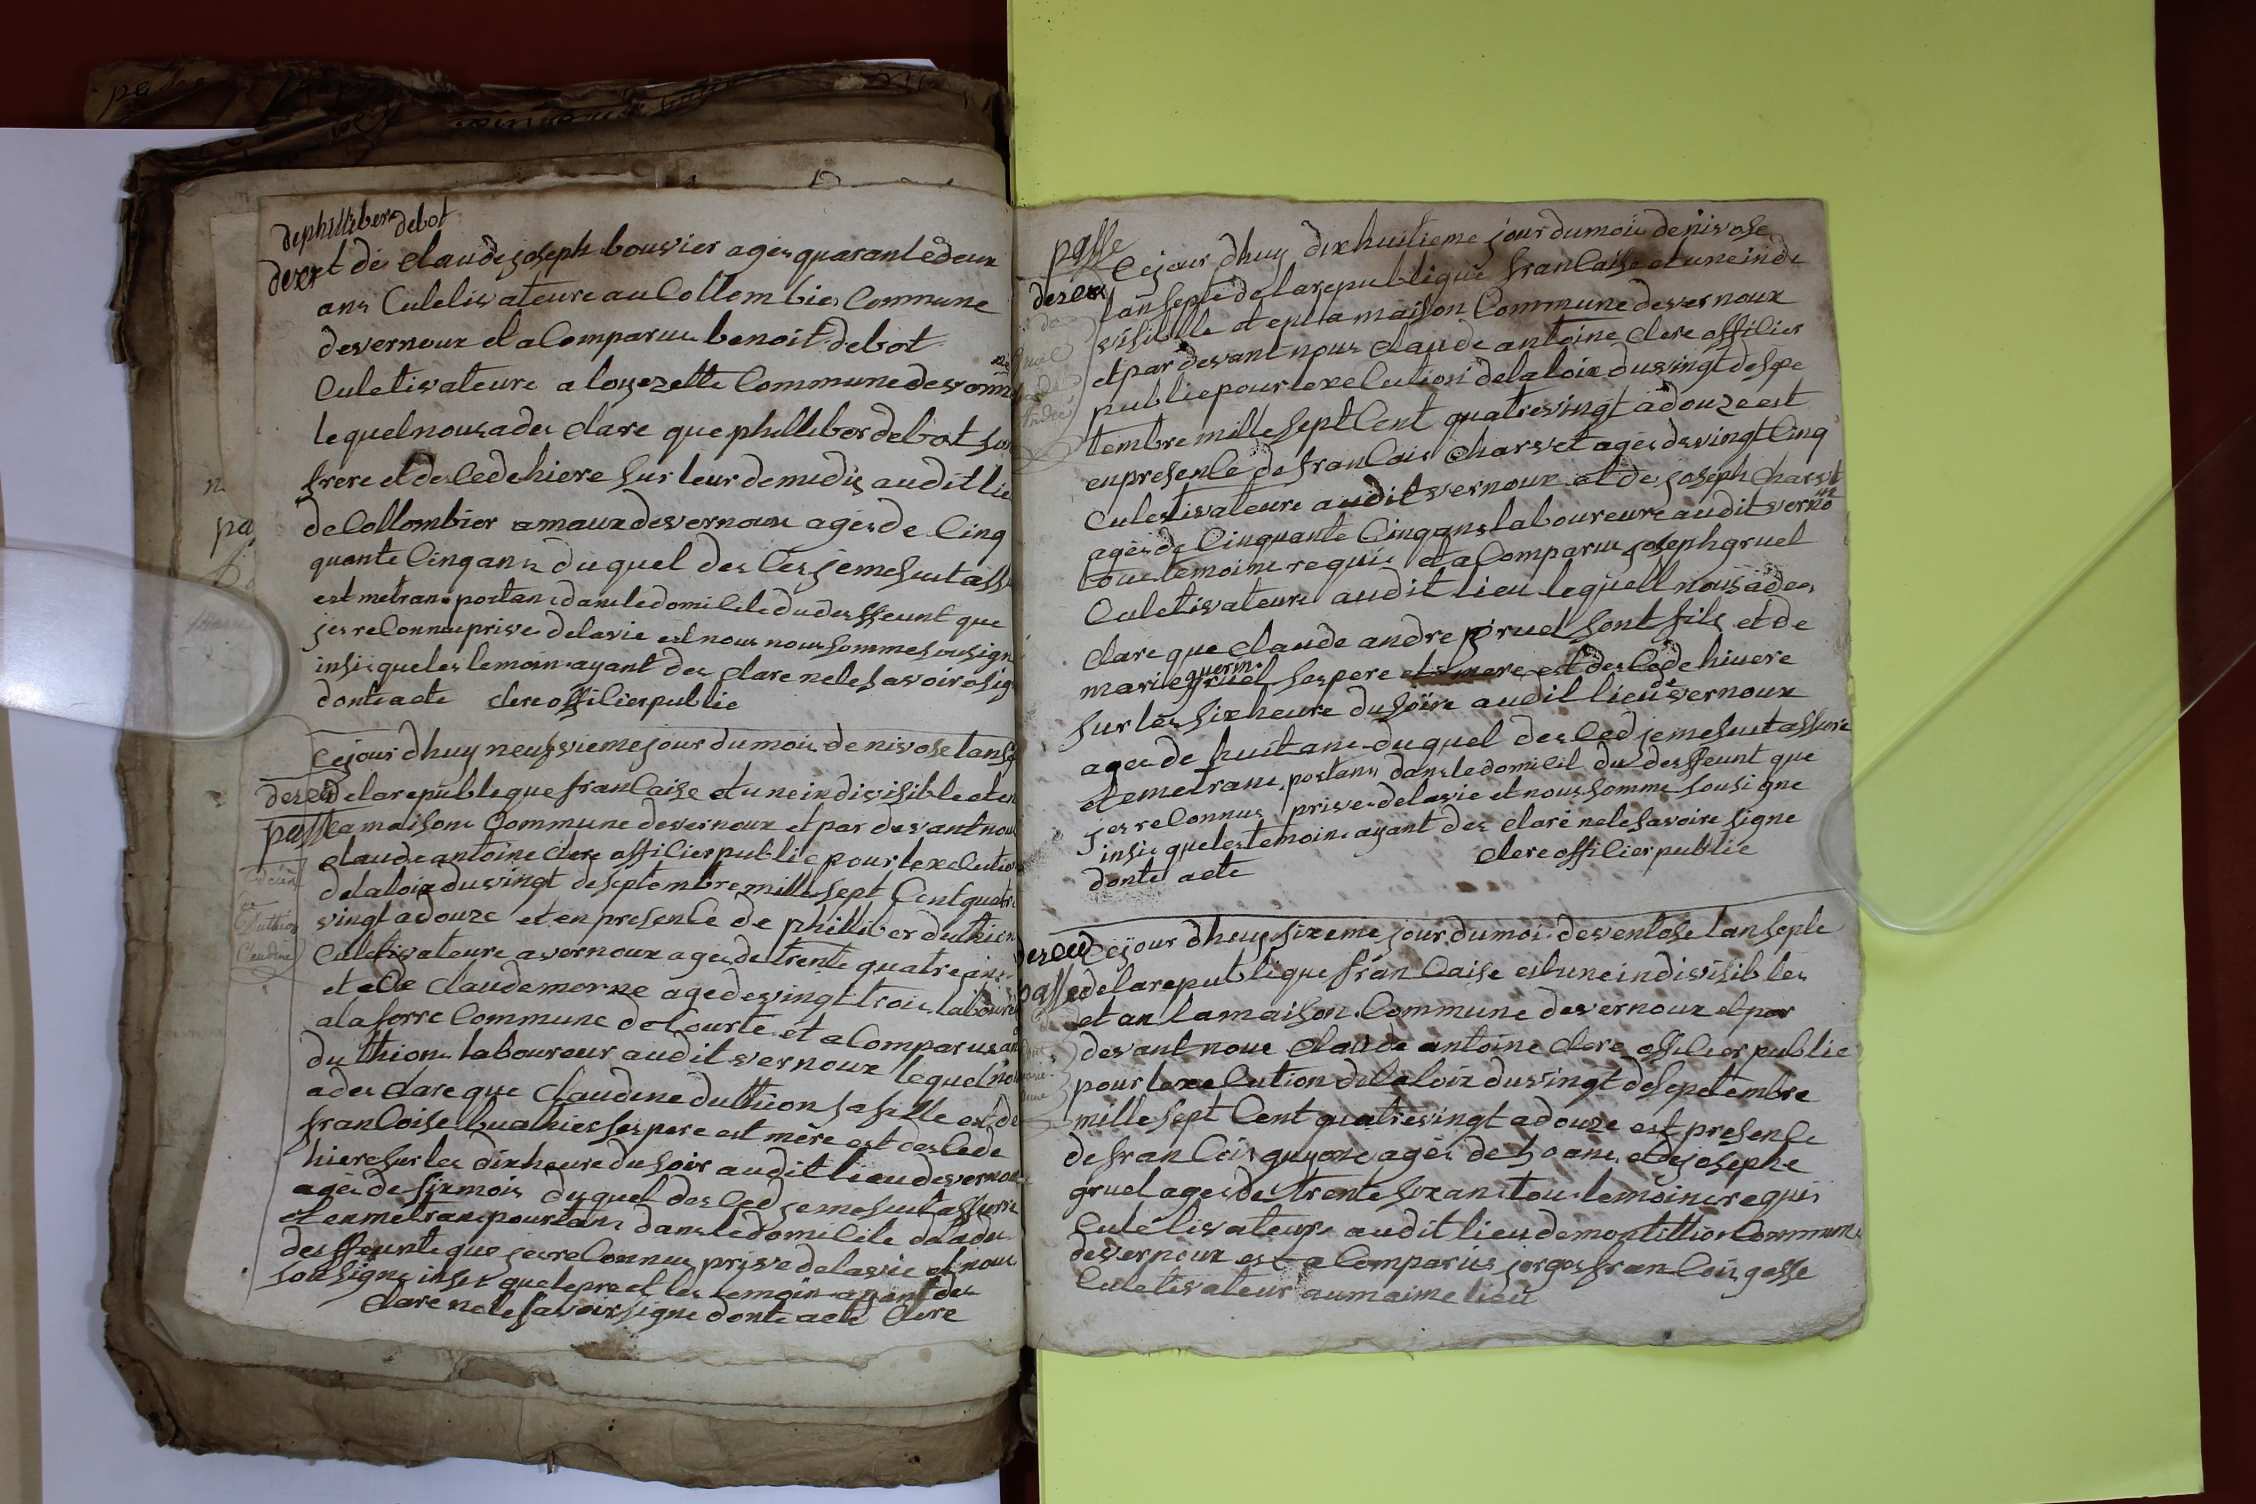 de philliber debot
et de claude joseph bouvier agés quarante deux
ans Culetivateure au Collombier Commune
devernoux et a Comparu benoit debot
Culetivateure a louzezette Commune devonne
lequel nous a des clare que philliber debot son
frere et des Cede hiere sur leur de midis audit lie
de Collombier amaux devernoux agés de Cinq
quante Cinq ans duquel des Cés je me suit assu
est me trans portans dans le domicile du desffeunt que
jes reConnu prive delavie est nous nous sommes sousign
insis que les temoins ayant des clare ne le savoire sig
dont acte clere offilier public
Cejour dhuy neufvieme jour du mois de nivose lan sep
desced de la republeque franCaise et une indivisible et en
passe la maison Commune devernoux et par devant nou
claude antoine clere offilier public pour lexecution
de la loix du vingt de septembre mille sept Cent quatre
vingt a douze et en presenCe de philliber duthion
Culetivateure a vernoux ages de trente quatre ans
et de Claude morne age de vingt trois laboure
a la serre Commune de Courte et a Comparu
duthion laboureur audit vernoux lequel nou
a des clare que Claudine duthion sa fille est de
franCoise buathier ses pere est mère est des Cede
hiere sur les dix heure du soir audit lieu devernou
ages de six mois duquel des Ced je me suit assurre
et en me trans pourtans dans le domicile de ladu
desffeunte que jes reConnu prive de la vie et nous
sousigne insis que le pre et les temoin ayant des
clare ne le savoir signe donte acte Clere
passe
desced
Cejour dhuy dix huitieme jour du mois de nivose
lan septe de la republique franCaise et une inde
visible et en la maison Commune devernoux
et par devant nous claude antoine clere offilier
public pour lexeCution de la loix du vingt de sepe
tembre mille sept Cent quatrevingt a douze est
en presenCe de franCois Charvet agés de vingt Cinq
Culetivateure audit vernoux et de joseph Charvt
agés de Cinquante Cinq ans laboureure audit verno ux
tous temoins requis et a Comparu joseph gruel
Culetivateure audit lieu lequell nous a des
clare que claude andre gruel sont fils et de
marie guerin ses pere et mere est des Cede hiuere
sur les six heure du soire audit lieu de vernoux
ages de huit ans duquel des Ced je me suit assure
et eme trans portans dans le domicil du desffeunt que
jes reConnus prive de la vie et nous somme sousigne
insis que les temoins ayant des clare ne le savoire signe
donte acte clere offilier public
desced Cejour dhuy sixeme jour du mois de ventose lan septe
passe de la republique franCaise est une indivisibles
et an la maison Commune devernoux et par
devant nous Claude antoine clere offilier public
pour lexeCution de la loix du vingt de sepetembre
mille sept Cent quatrevingt a douze est presenCe
de franCois guyon agés de 50 ans et de josephe
gruel ages de trente six ans tous temoins requis
Culetivateure audit lieu de montittion Commune
devernoux est a Comparus jorges franCois gasse
Culetivateur au maime lieu